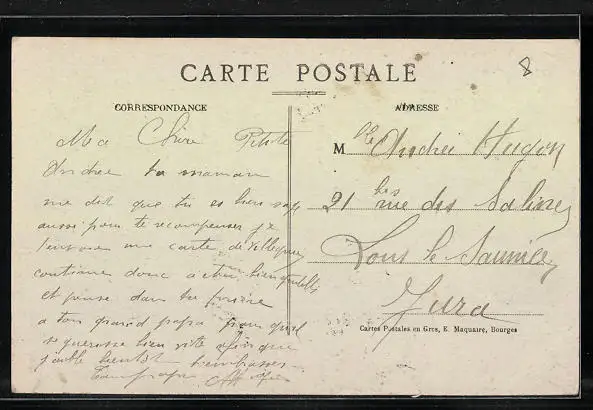 CARTE POSTALE
8
CORRESPONDANCE
ADRESSE
Ma Chère Petite
Andrée ta maman
me dit que tu es bien sage
aussi pour te recompenser je
t'envoie une carte de
continue donc a etre bien gentille
et pense dans ta prière
a ton grand papa pour qu'il
se guerisse bien vite afin que
j'aille bientôt t'embrasser
Ton papa
M lle Andrée Hugon
21 bis rue des Salines
Lons le Saunier
Jura
Cartes Postales en Gros, E. Maquaire, Bourges